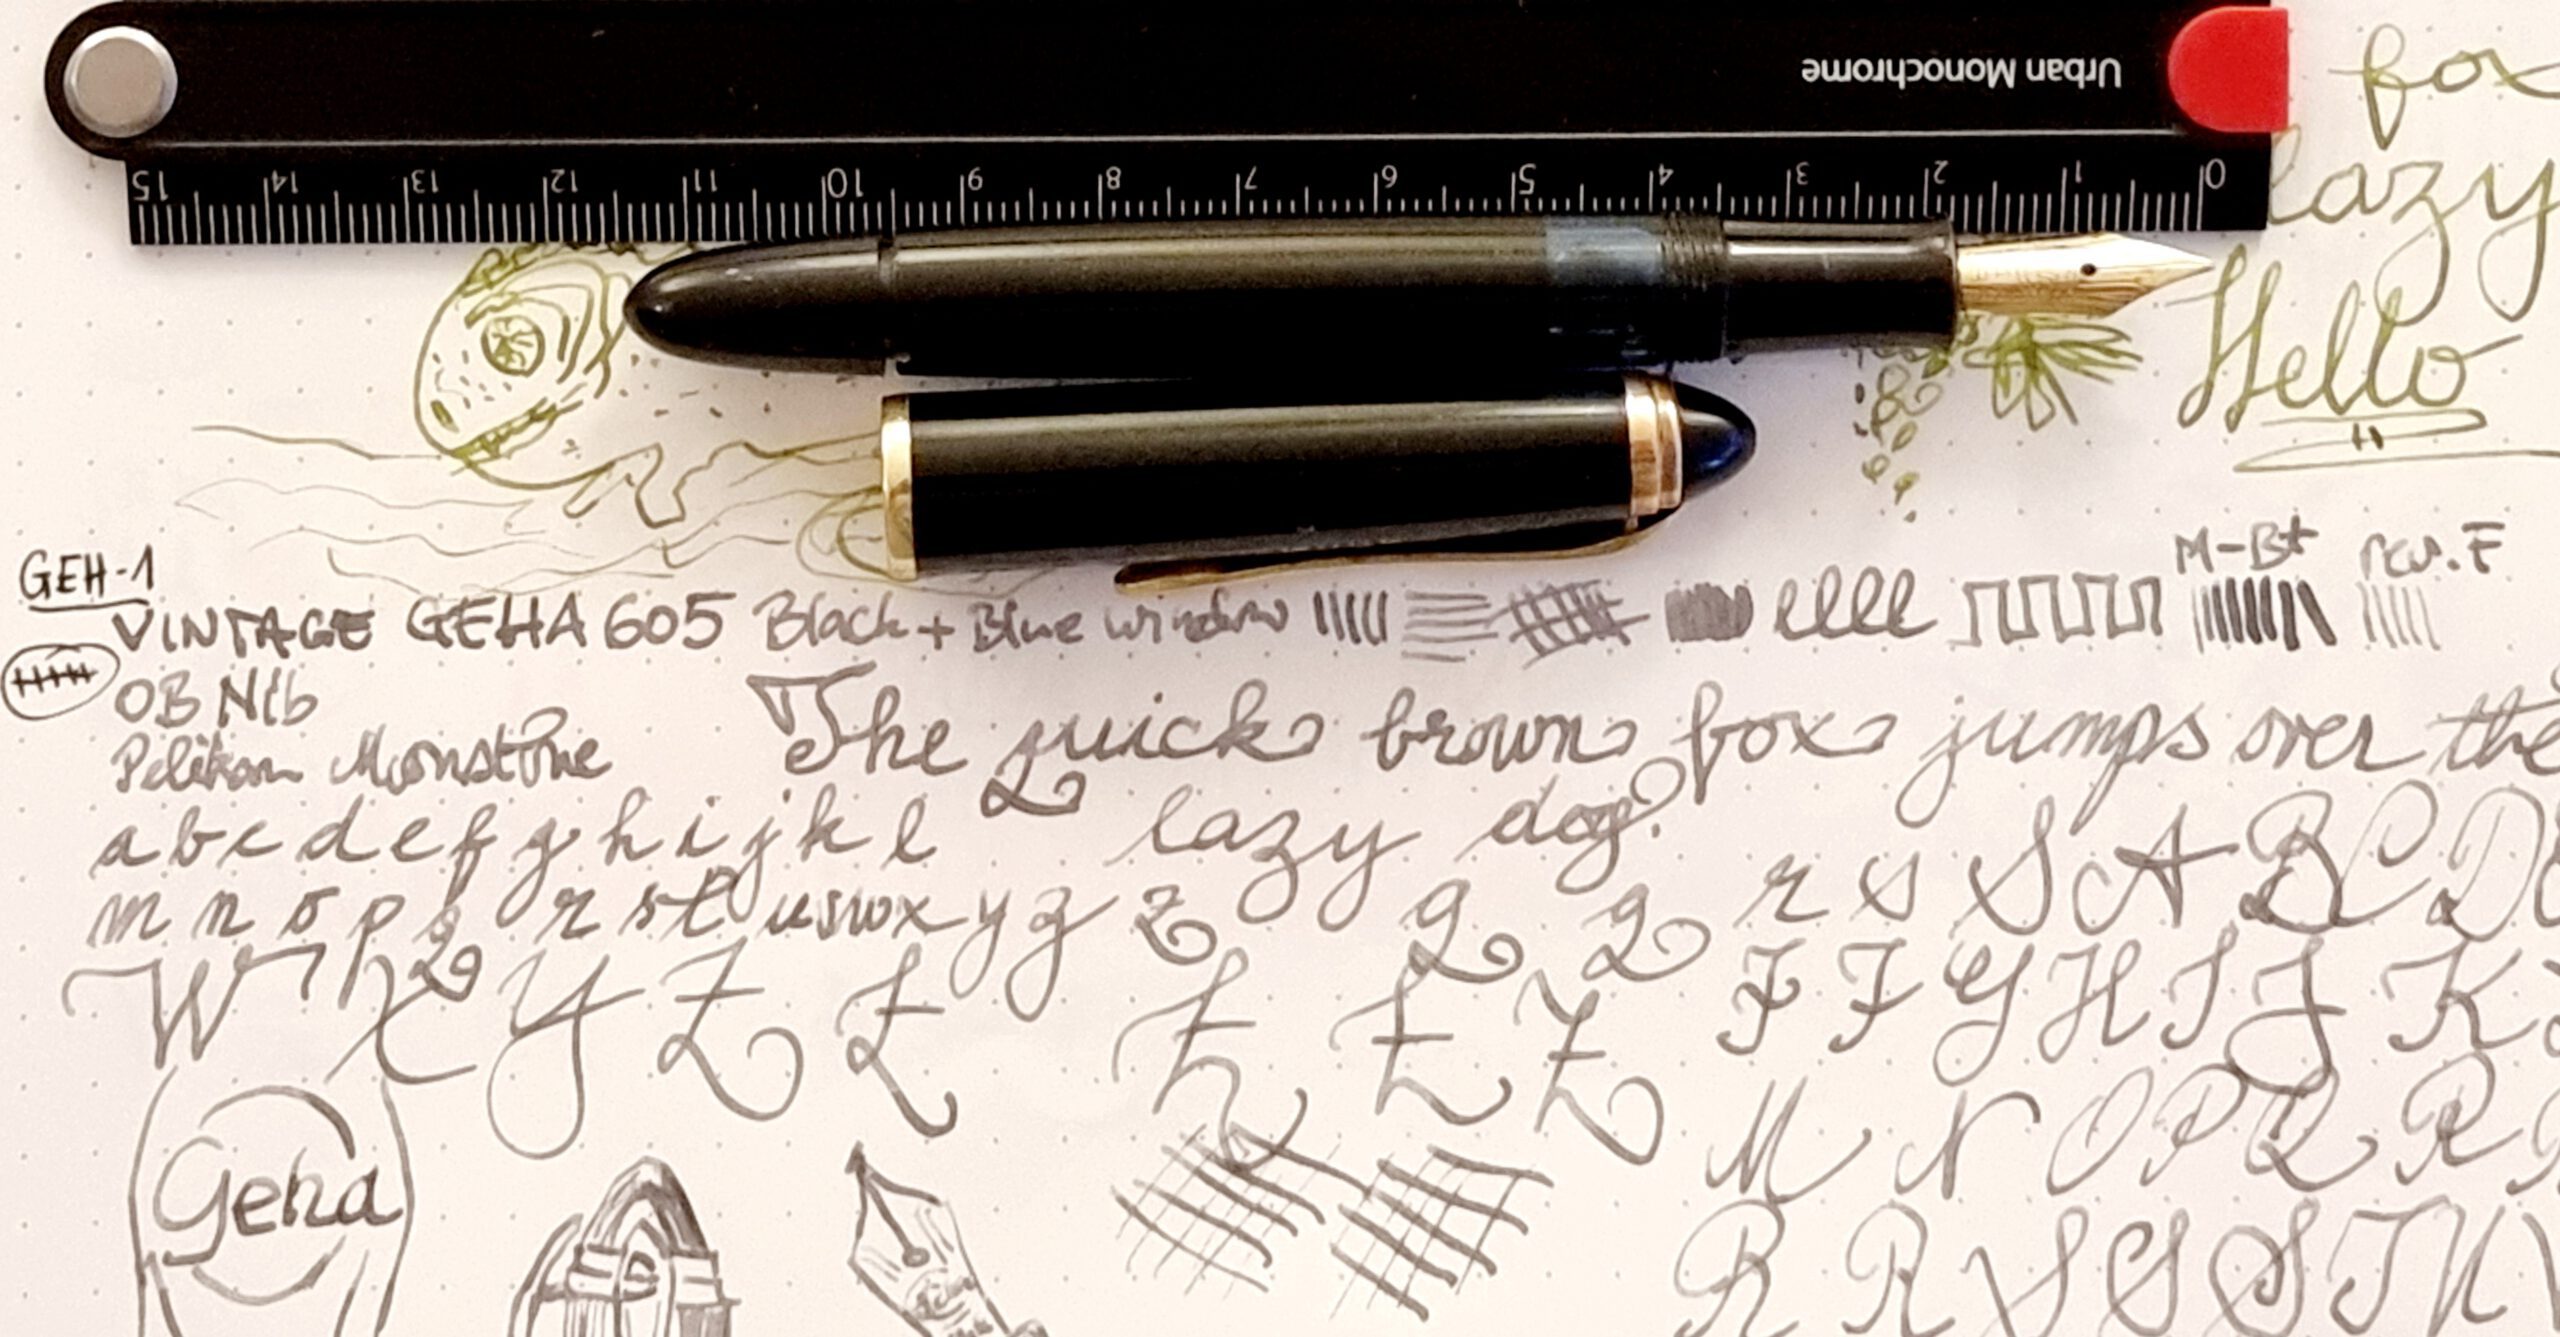 Urban Monochrome
15 14 13 12 11 10 9 8 7 6 5 4 3 2 1 0
fox
lazy
Hello
GEH-1
M-B+ rev. F
VINTAGE GEHA 605 Black + Blue window
OB Nib
Pelikan Moonstone
The quick brown fox jumps over the
lazy dog?
a b c d e f g h i j k l
m n o p q r s t u v w x y z z q q r s S A B C D
W X Y Z Z Z Z Z F F G H I J K
M N O P Q R
R R S S S T U
Geha